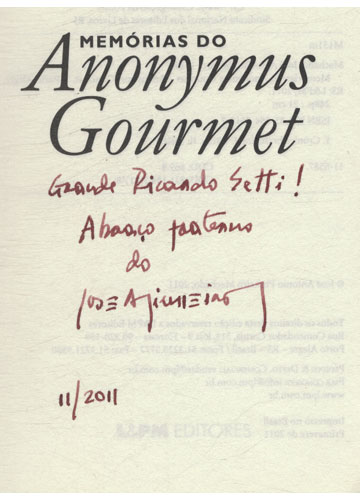 MEMÓRIAS DO
Anonymus
Gourmet
Grande Ricardo Setti!
Abraço fraterno
do
11/2011
L&PM EDITORES